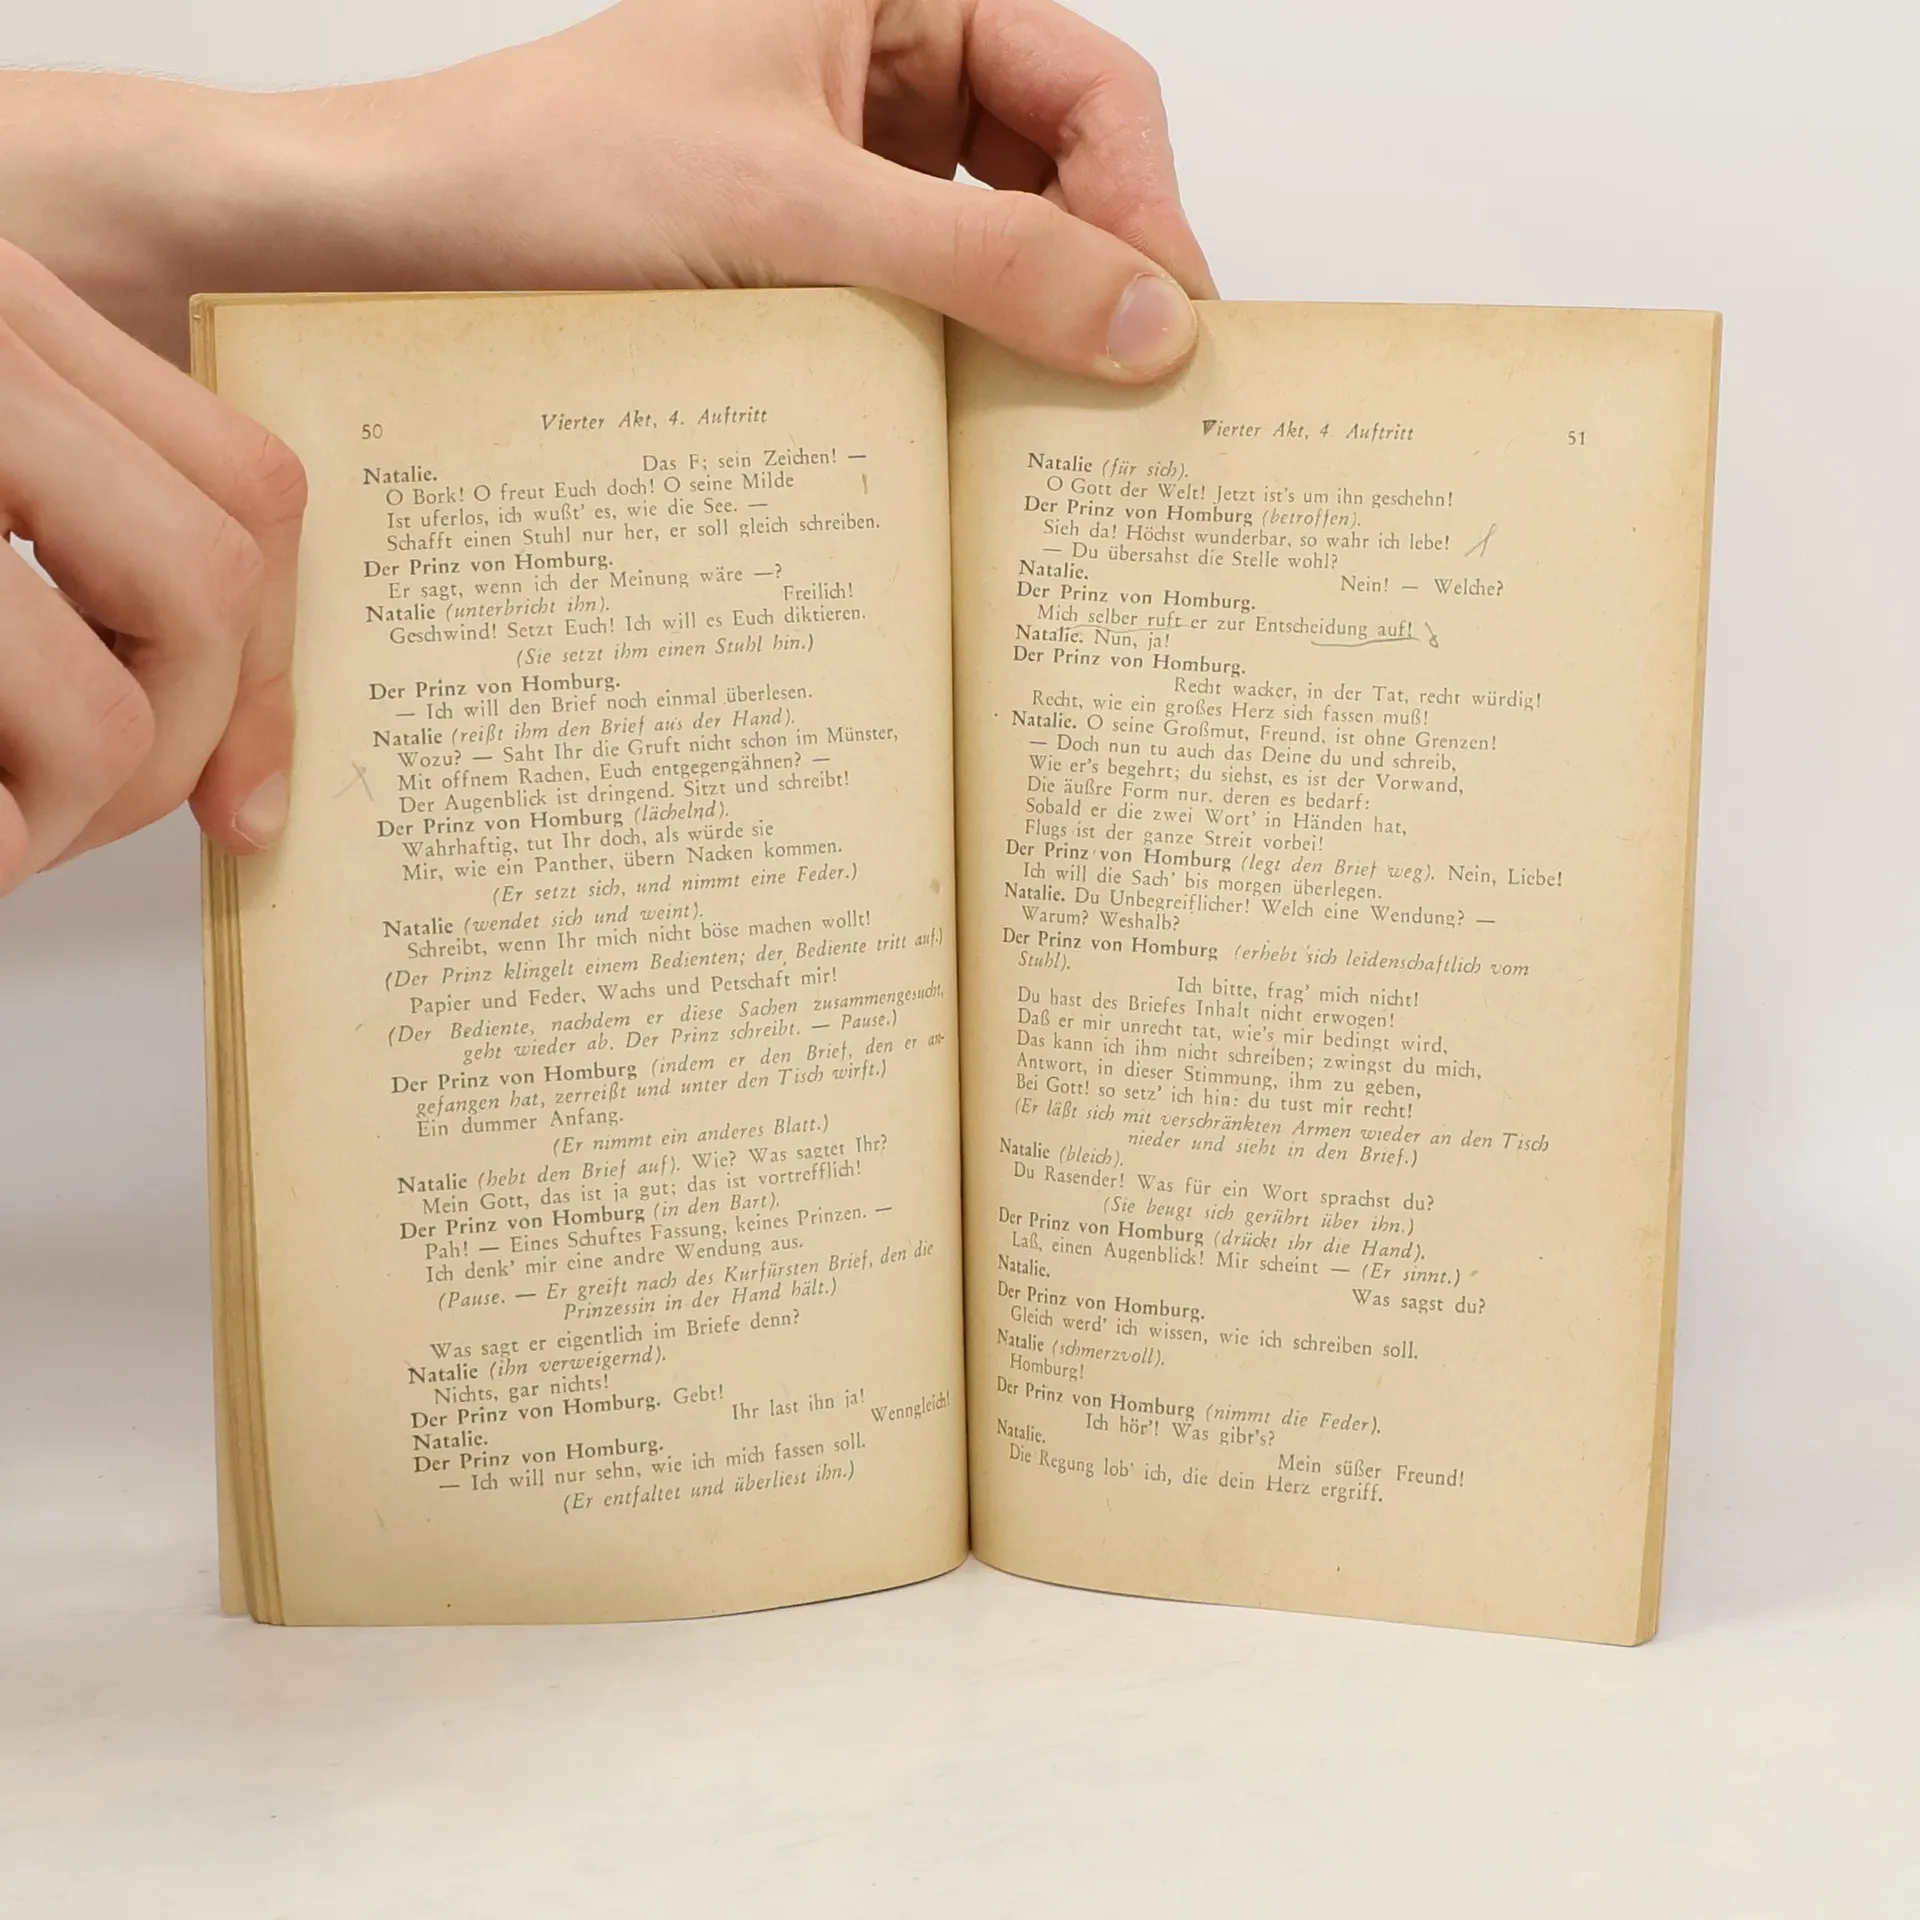 50
Vierter Akt, 4. Auftritt
Das F; sein Zeichen! —
Natalie.
O Bork! O freut Euch doch! O seine Milde
Ist uferlos, ich wußt' es, wie die See. —
Schafft einen Stuhl nur her, er soll gleich schreiben.
Der Prinz von Homburg.
Er sagt, wenn ich der Meinung wäre —?
Natalie (unterbricht ihn). Freilich!
Geschwind! Setzt Euch! Ich will es Euch diktieren.
(Sie setzt ihm einen Stuhl hin.)
Der Prinz von Homburg.
— Ich will den Brief noch einmal überlesen.
Natalie (reißt ihm den Brief aus der Hand).
Wozu? — Saht Ihr die Gruft nicht schon im Münster,
Mit offnem Rachen, Euch entgegengähnen? —
Der Augenblick ist dringend. Sitzt und schreibt!
Der Prinz von Homburg (lächelnd).
Wahrhaftig, tut Ihr doch, als würde sie
Mir, wie ein Panther, übern Nacken kommen.
(Er setzt sich, und nimmt eine Feder.)
Natalie (wendet sich und weint).
Schreibt, wenn Ihr mich nicht böse machen wollt!
(Der Prinz klingelt einem Bedienten; der Bediente tritt auf.)
Papier und Feder, Wachs und Petschaft mir!
(Der Bediente, nachdem er diese Sachen zusammengesucht,
geht wieder ab. Der Prinz schreibt. — Pause.)
Der Prinz von Homburg (indem er den Brief, den er an-
gefangen hat, zerreißt und unter den Tisch wirft.)
Ein dummer Anfang.
(Er nimmt ein anderes Blatt.)
Natalie (hebt den Brief auf). Wie? Was sagtet Ihr?
Mein Gott, das ist ja gut; das ist vortrefflich!
Der Prinz von Homburg (in den Bart).
Pah! — Eines Schuftes Fassung, keines Prinzen. —
Ich denk' mir eine andre Wendung aus.
(Pause. — Er greift nach des Kurfürsten Brief, den die
Prinzessin in der Hand hält.)
Was sagt er eigentlich im Briefe denn?
Natalie (ihn verweigernd).
Nichts, gar nichts!
Der Prinz von Homburg. Gebt!
Ihr last ihn ja!
Natalie.
Wenngleich!
Der Prinz von Homburg.
— Ich will nur sehn, wie ich mich fassen soll.
(Er entfaltet und überliest ihn.)
Vierter Akt, 4. Auftritt
51
Natalie (für sich).
O Gott der Welt! Jetzt ist's um ihn geschehn!
Der Prinz von Homburg (betroffen).
Sieh da! Höchst wunderbar, so wahr ich lebe!
— Du übersahst die Stelle wohl?
Natalie.
Nein! — Welche?
Der Prinz von Homburg.
Mich selber ruft er zur Entscheidung auf!
Natalie. Nun, ja!
Der Prinz von Homburg.
Recht wacker, in der Tat, recht würdig!
Recht, wie ein großes Herz sich fassen muß!
Natalie. O seine Großmut, Freund, ist ohne Grenzen!
— Doch nun tu auch das Deine du und schreib,
Wie er's begehrt; du siehst, es ist der Vorwand,
Die äußre Form nur, deren es bedarf:
Sobald er die zwei Wort' in Händen hat,
Flugs ist der ganze Streit vorbei!
Der Prinz von Homburg (legt den Brief weg). Nein, Liebe!
Ich will die Sach' bis morgen überlegen.
Natalie. Du Unbegreiflicher! Welch eine Wendung? —
Warum? Weshalb?
Der Prinz von Homburg (erhebt sich leidenschaftlich vom
Stuhl).
Ich bitte, frag' mich nicht!
Du hast des Briefes Inhalt nicht erwogen!
Daß er mir unrecht tat, wie's mir bedingt wird,
Das kann ich ihm nicht schreiben; zwingst du mich,
Antwort, in dieser Stimmung, ihm zu geben,
Bei Gott! so setz' ich hin: du tust mir recht!
(Er läßt sich mit verschränkten Armen wieder an den Tisch
nieder und sieht in den Brief.)
Natalie (bleich).
Du Rasender! Was für ein Wort sprachst du?
(Sie beugt sich gerührt über ihn.)
Der Prinz von Homburg (drückt ihr die Hand).
Laß, einen Augenblick! Mir scheint — (Er sinnt.)
Natalie.
Was sagst du?
Der Prinz von Homburg.
Gleich werd' ich wissen, wie ich schreiben soll.
Natalie (schmerzvoll).
Homburg!
Der Prinz von Homburg (nimmt die Feder).
Ich hör'! Was gibt's?
Natalie.
Mein süßer Freund!
Die Regung lob' ich, die dein Herz ergriff.